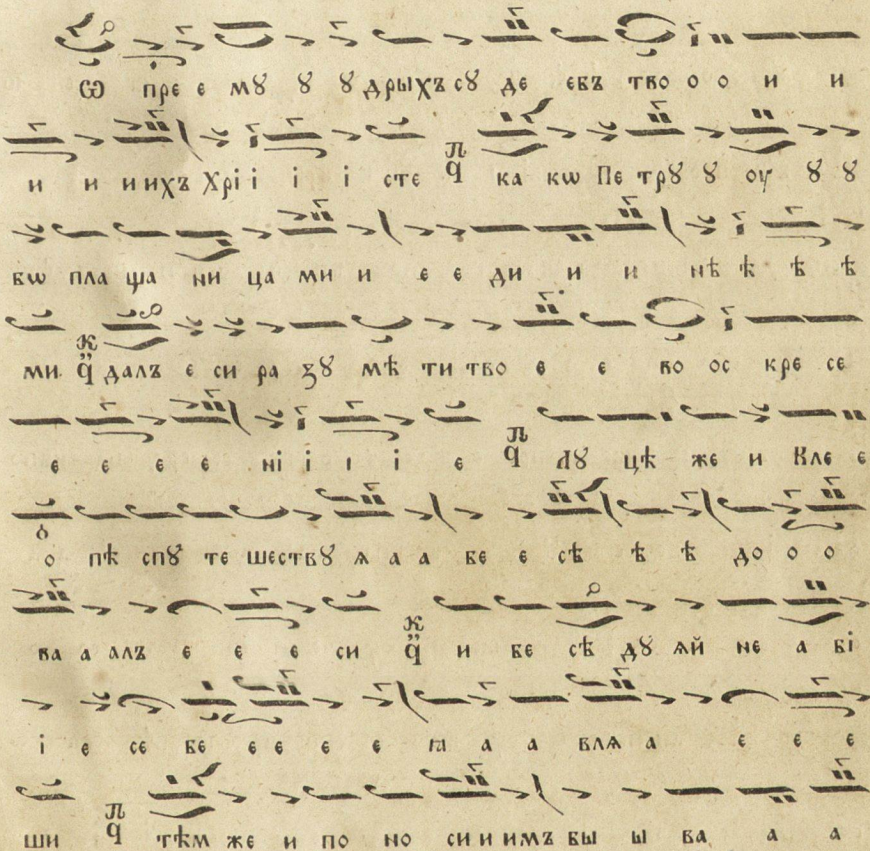 Ѡ пре е мꙋ ꙋ ꙋ дрыхъ сꙋ де євъ тво о о и и
и и и ихъ Хрі і і і сте п ч ка кѡ Пе трꙋ ꙋ оу ꙋ ꙋ
вѡ пла ща ни ца ми и е е ди и и нѣ ѣ ѣ ѣ
ми к ч далъ е си ра зꙋ мѣ ти тво е е во ос кре се
е е е е ні і і і е п ч Лꙋ цѣ же и Кле е
о пѣ спꙋ те шествꙋ ѧ а а бе е сѣ ѣ ѣ до о о
ва а алъ е е е си к ч и бе сѣ дꙋ ѧй не а ві
і е се бе е е е е ꙗ а а влѧ а е е е
ши п ч тѣм же и по но си и имъ бы ы ва а а